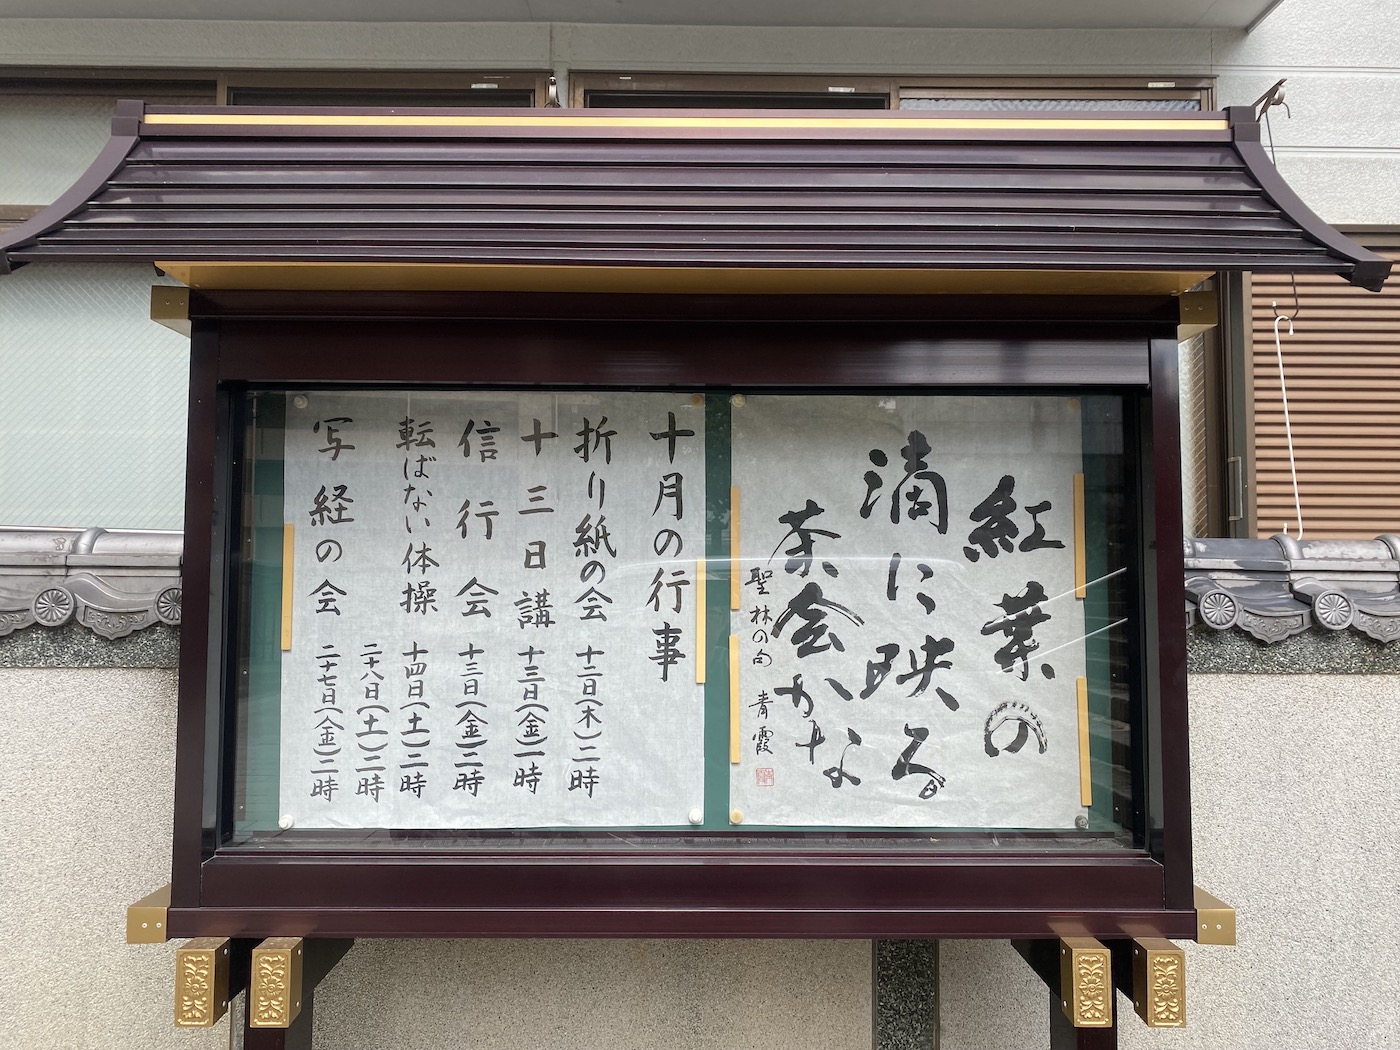 紅葉の
滴に映る
茶会かな
聖林の句 青霞
十月の行事
折り紙の会 十二日(木)二時
十三日講 十三日(金)一時
信行会 十三日(金)二時
転ばない体操 十四日(土)二時
二十八日(土)二時
写経の会 二十七日(金)二時